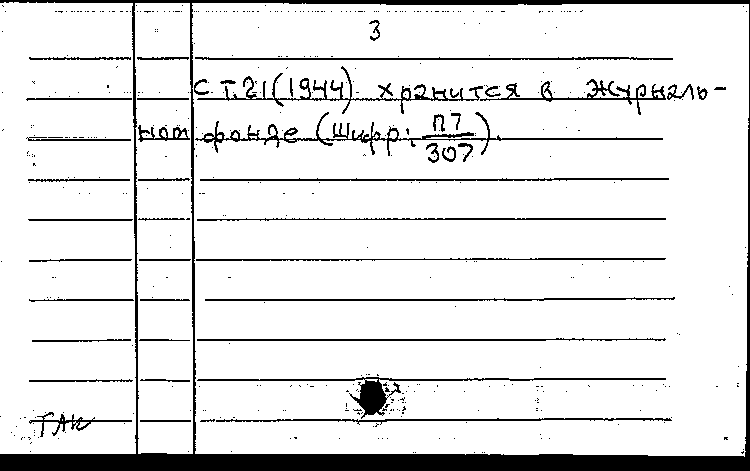 3
С Т.21(1944) хранится в журналь-
ном фонде (шифр: П7/307).
ТАК